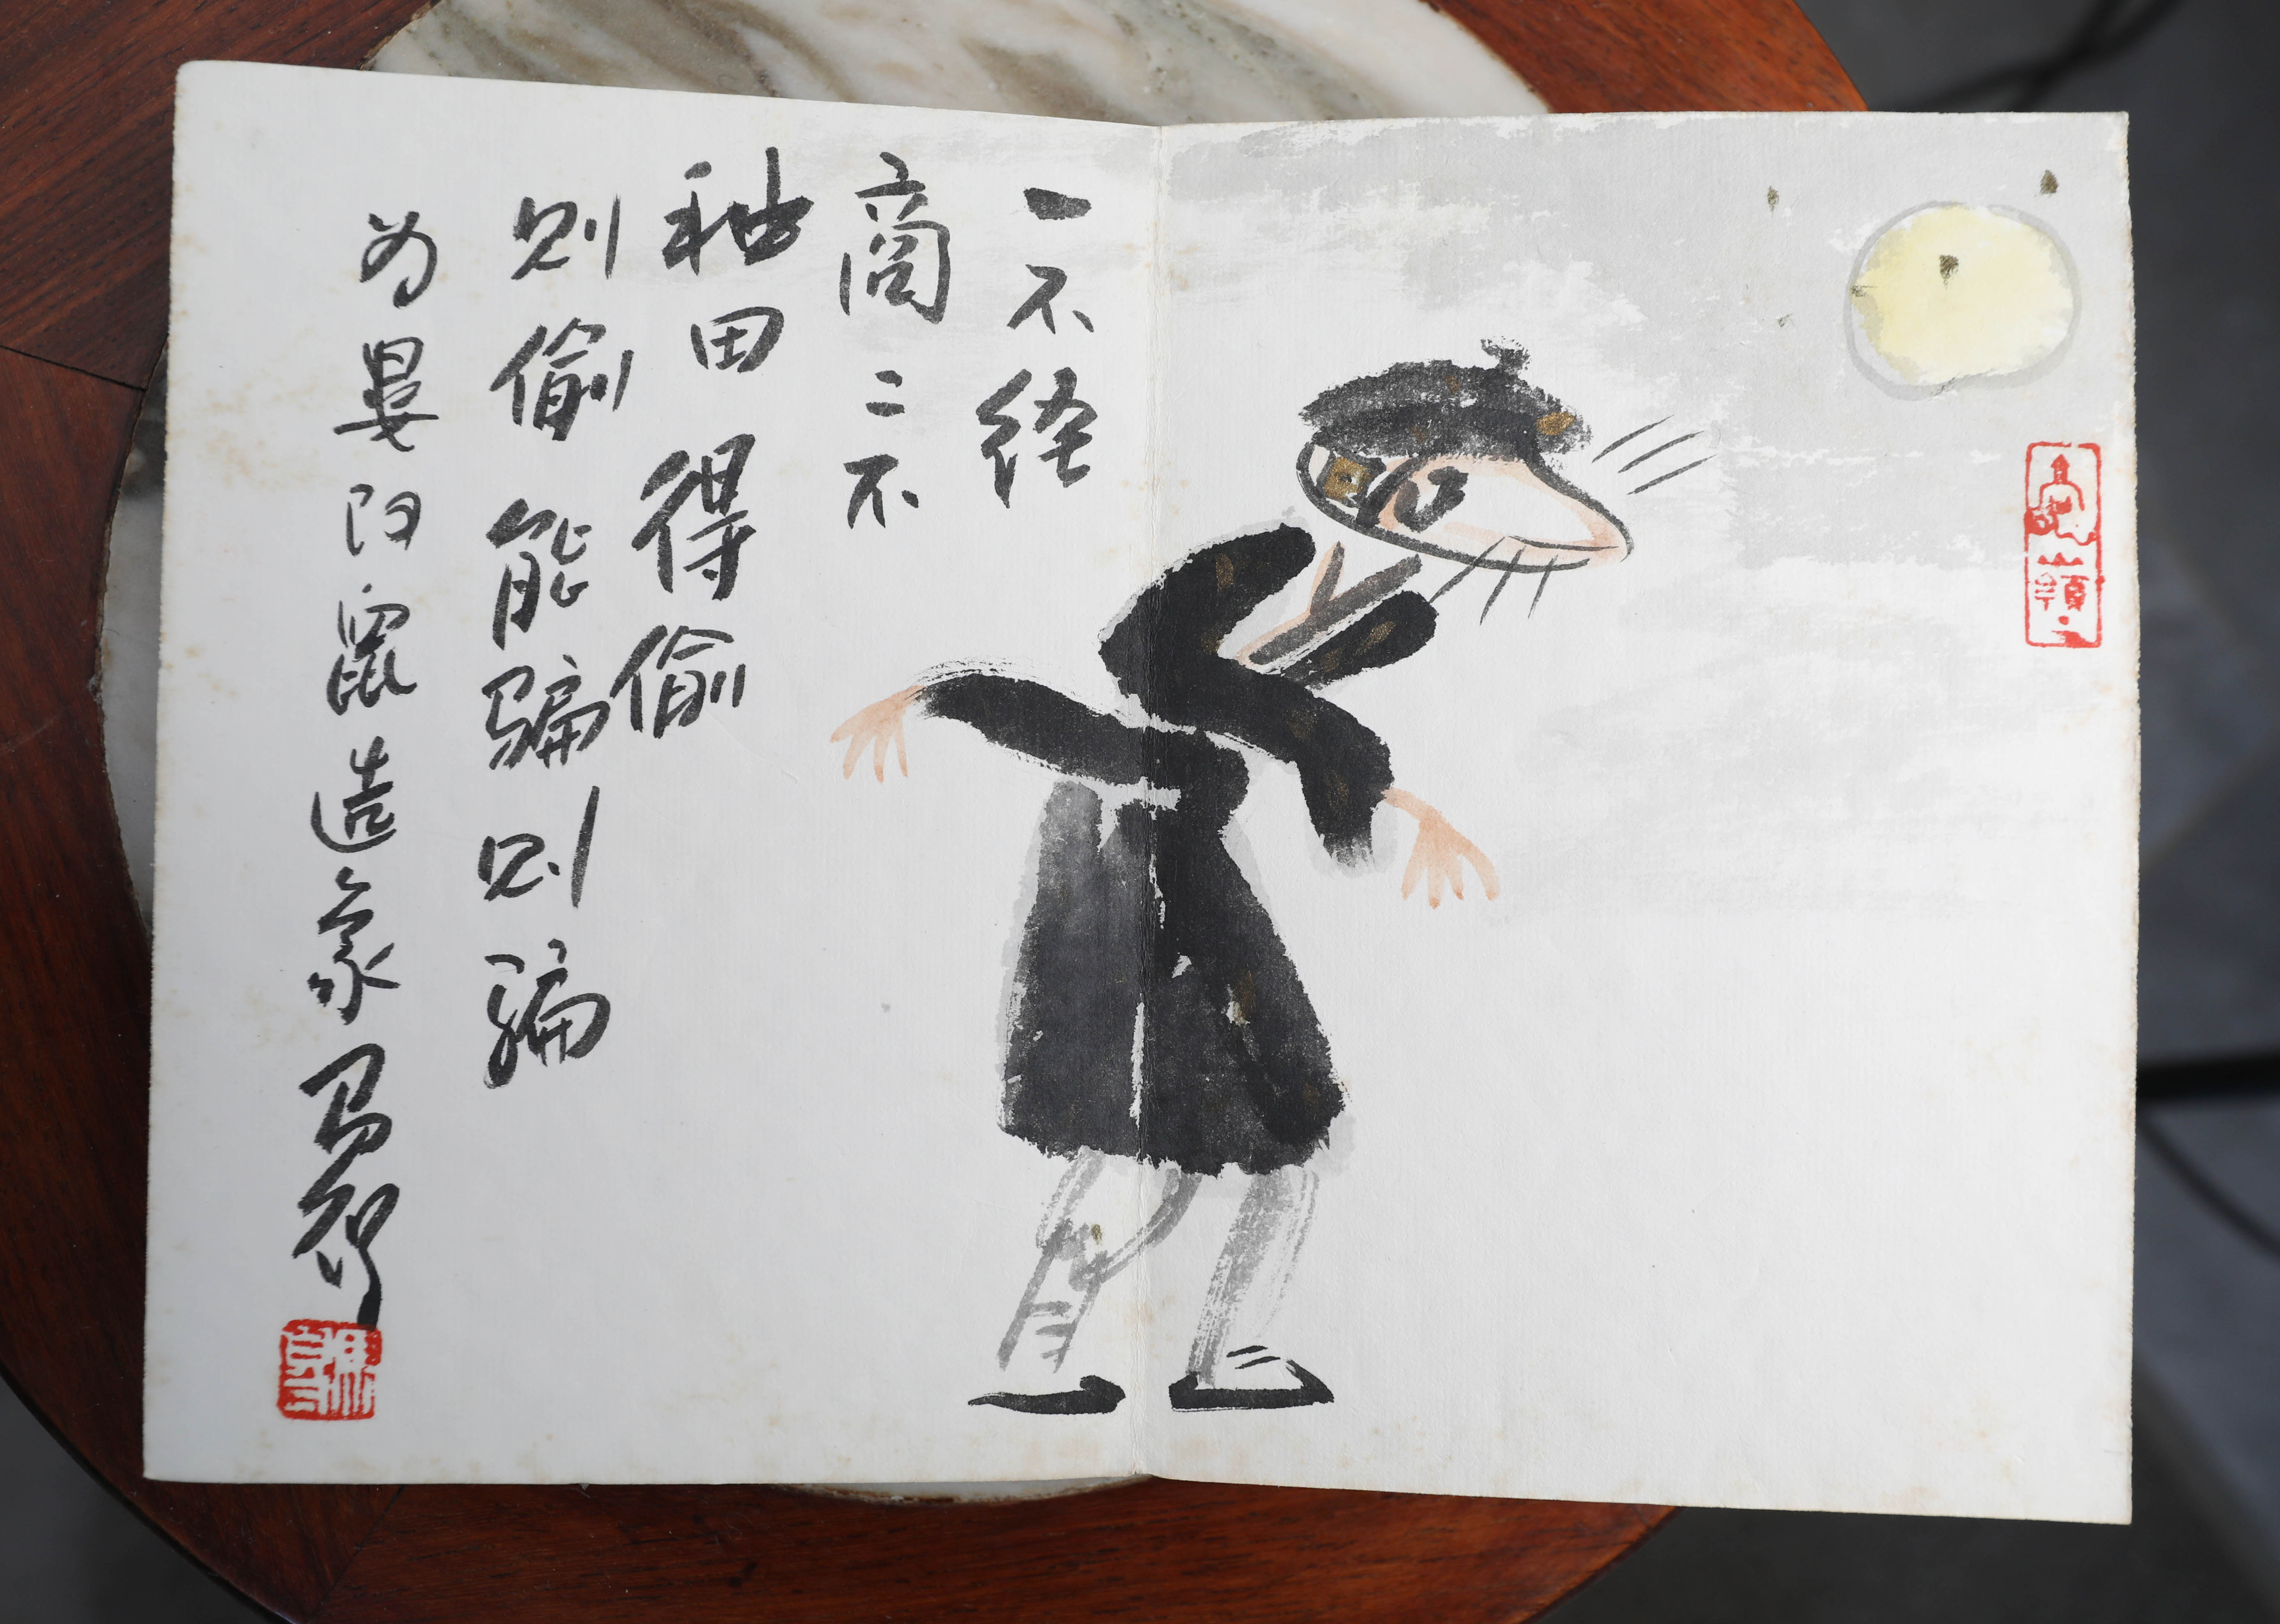 一不经
商二不
种田得偷
则偷能骗则骗
为婁阿鼠造象马得